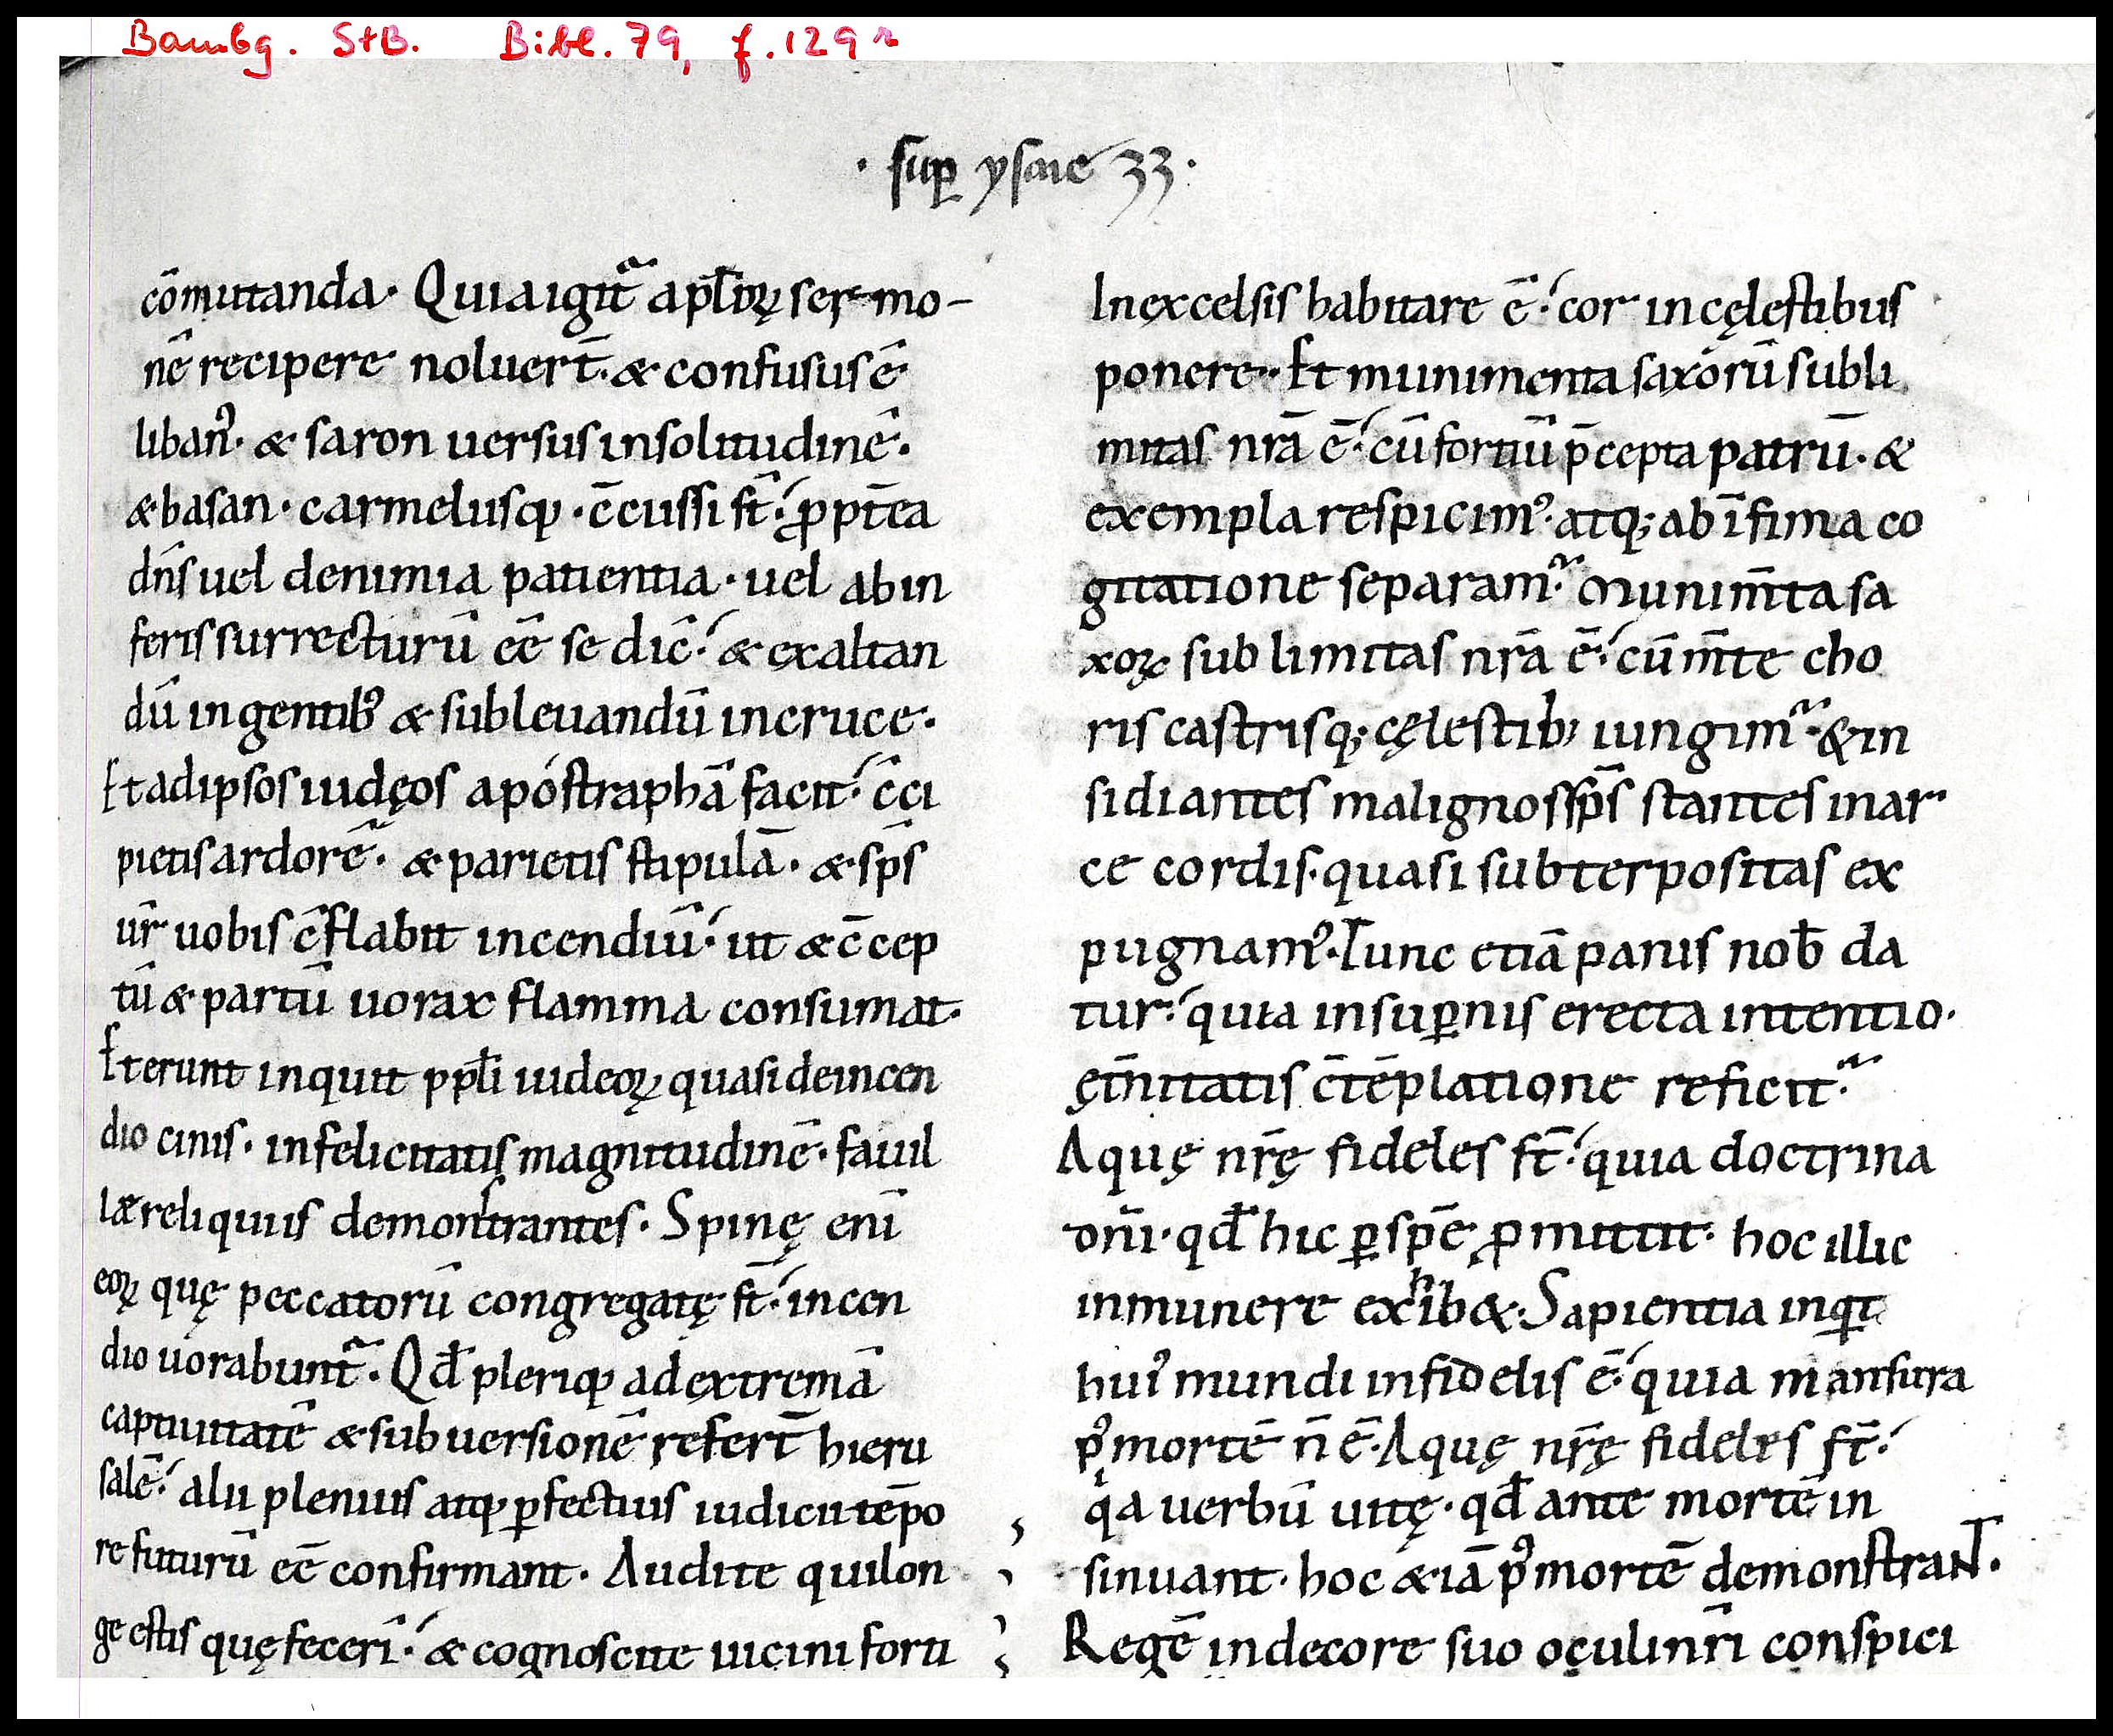 Bambg. StB. Bibl. 79, f. 129r
· suꝑ ysaie 33 ·
cōmutanda· Quia igit᷑ apl̄oꝝ sermo-
nē recipere noluer̄t· & confusus ē·
libanꝰ· & saron uersus insolitudinē·
& basan· carmelusq;· c̄cussi st̄· ꝓpt̄ea
dn̄s uel denimia patientia· uel abin
feris surrecturū eē se dic̄· & exaltan
dū in gentibꝰ & subleuandū incruce·
Et adipsos iudęos apóstraphā facit· c̄ci
pietis ardorē· & parietis stipulā· & sp̄s
ur̄ uobis c̄flabit incendiū· ut & c̄cep
tū & partū uorax flamma consumat·
Et erunt inquit ppl̄i iudeoꝝ quasi deincen
dio cinis· infelicitatis magnitudinē· fauil
læ reliquiis demonstrantes· Spinę enī
eoꝝ quę peccatorū congregatę st̄· incen
dio uorabunt᷑· Qd̄ pleriq; ad extremā
captiuitatē & subuersionē refer̄t hieru
salē· alii plenius atq; ꝑfectius iudicii tēpo
re futurū eē confirmant· Audite qui lon
ge estis quę fecerī· & cognoscite uicini forti
In excelsis habitare ē· cor in cęlestibus
ponere· Et munimenta saxorū subli
mitas nr̄a ē· cū fortiū p̄cepta patrū· &
exempla respicimꝰ· atq; ab īfima co
gitatione separam᷑· Munim̄ta sa
xoꝝ sublimitas nr̄a ē· cū m̄te cho
ris castrisq; cęlestib; iungim᷑· & in
sidiantes malignos sp̄s stantes in ar
ce cordis· quasi subterpositas ex
pugnamꝰ· Tunc etiā panis nob̄ da
tur· quia insuꝑnis erecta intentio·
ęt̄nitatis c̄tēplatione reficit᷑·
Aquę nr̄ę fideles st̄· quia doctrina
dn̄i· qd̄ hic ꝑ spē ꝓmittit· hoc illic
inmunere exhib&· Sapientia inqt
huiꝰ mundi infidelis ē· quia mansura
pꝰ mortē n̄ ē· Aquę nr̄ę fideles st̄·
qa uerbū uitę· qd̄ ante mortē in
sinuant· hoc & iā pꝰ mortē demonstrant·
Regē indecore suo oculi nr̄i conspici